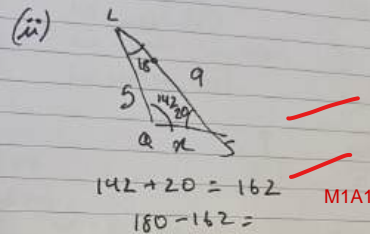 (ii)
L
18°
5
9
142
20
Q
x
S
142 + 20 = 162
M1A1
180 - 162 =